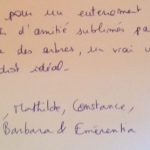 pour un enterrement
d'amitié sublimés pa
des arbres, un vrai u
idéal.
, Mathilde, Constance,
Barbara & Emerentia